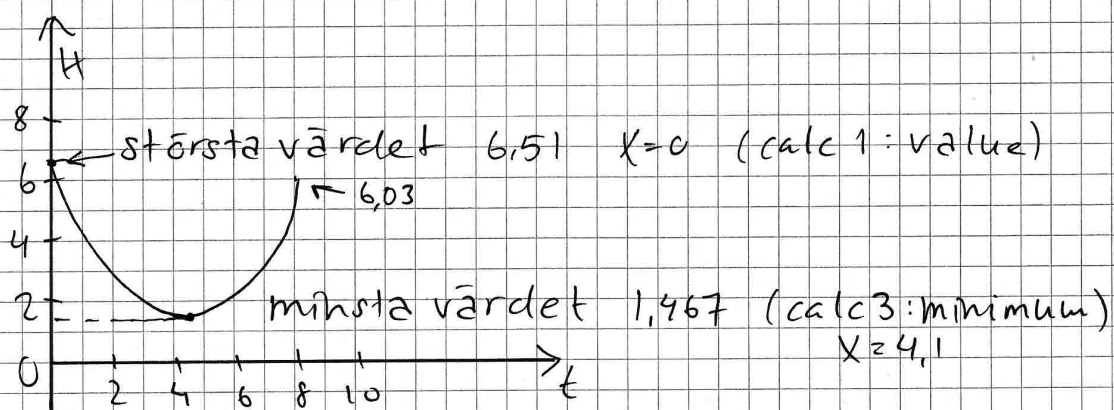 H
8
största värdet 6,51 X=0 (calc 1: value)
6
6,03
4
2
minsta värdet 1,467 (calc3:minimum)
X=4,1
0
2 4 6 8 10
t